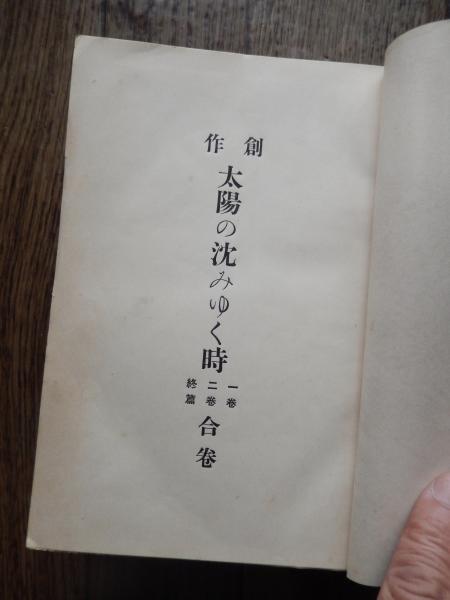 創作
太陽の沈みゆく時
一卷
二卷
終篇
合卷